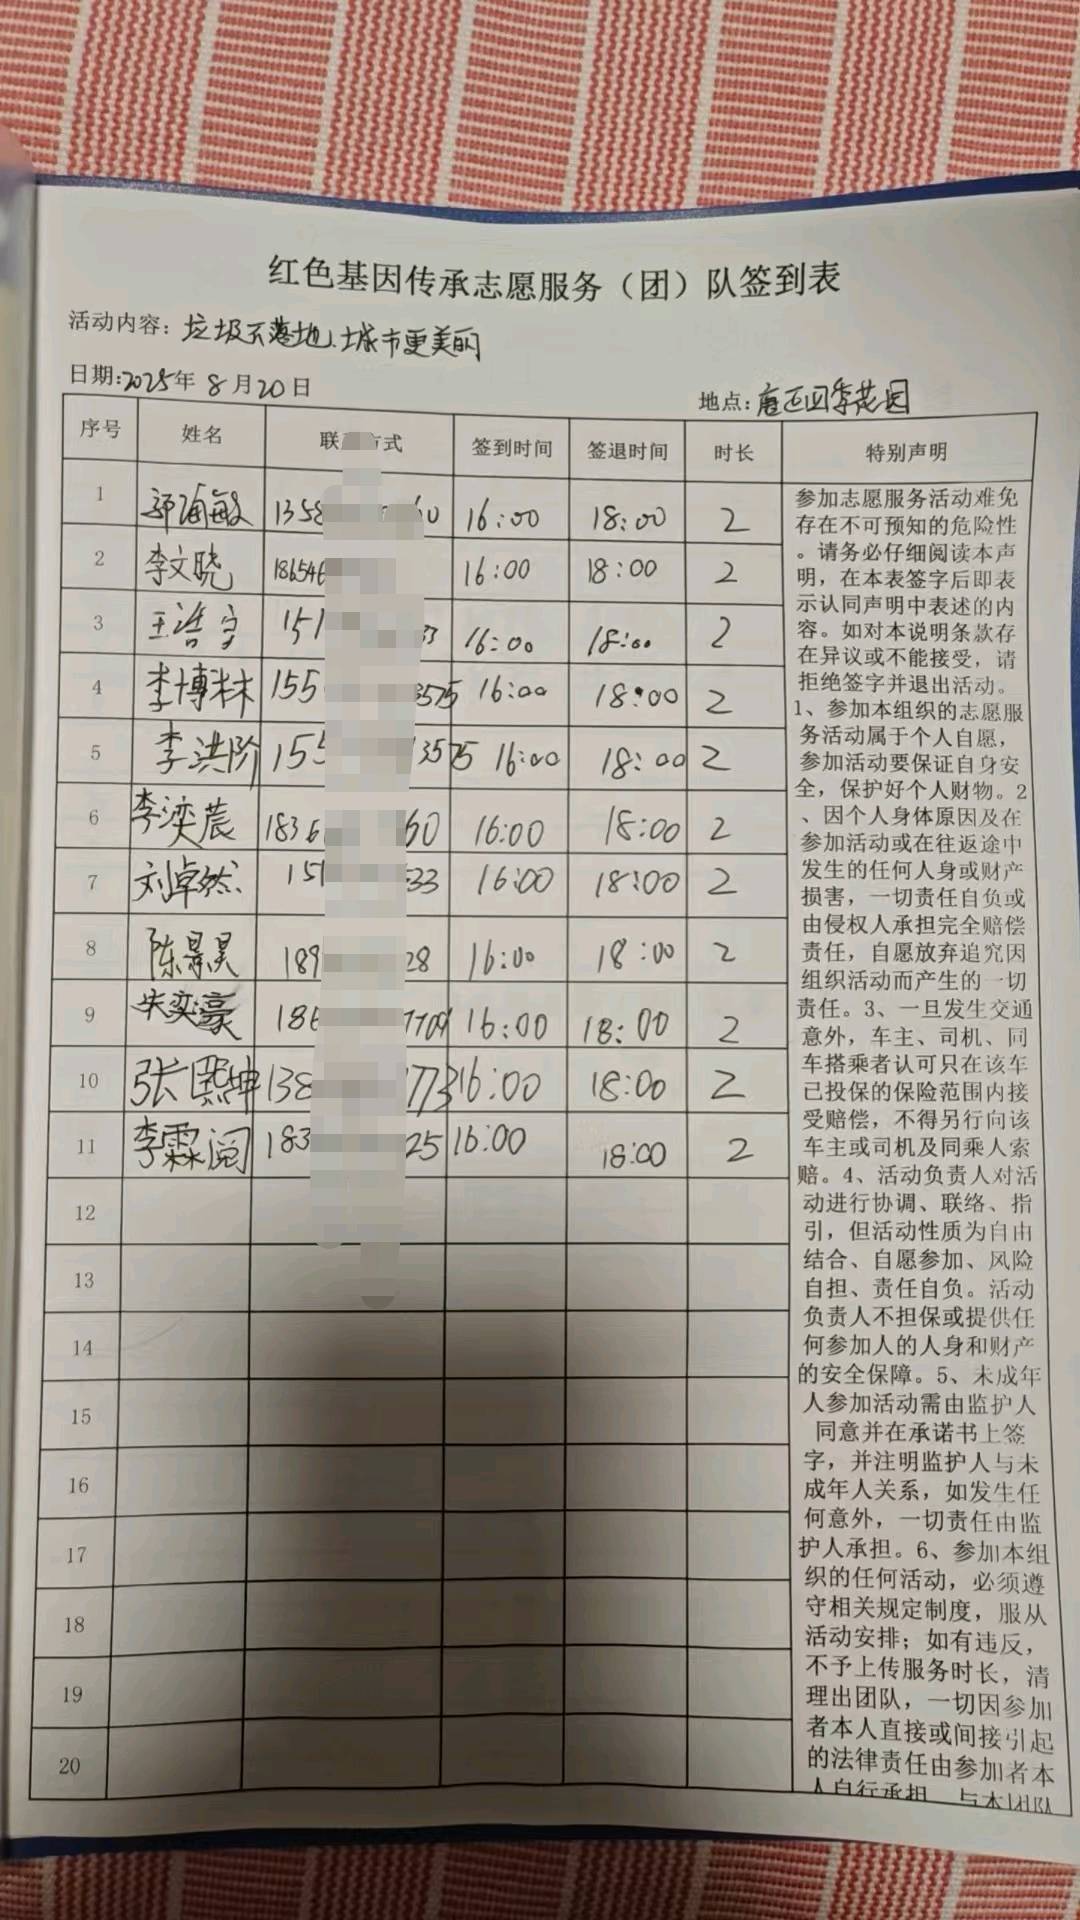 红色基因传承志愿服务（团）队签到表
活动内容：垃圾不落地、城市更美丽
日期:2025年 8月20日
地点:唐正四季花园
序号 姓名 联 方式 签到时间 签退时间 时长 特别声明
1 敏 1358 60 16:00 18:00 2
2 李文晓 186546 16:00 18:00 2
3 王浩宇 151 33 16:00 18:00 2
4 李博林 155 3575 16:00 18:00 2
5 李洪阶 155 3575 16:00 18:00 2
6 李奕晨 1836 60 16:00 18:00 2
7 刘卓然 151 533 16:00 18:00 2
8 陈景昊 189 28 16:00 18:00 2
9 朱奕濠 186 7709 16:00 18:00 2
10 张熙坤 138 773 16:00 18:00 2
11 李霖阅 183 25 16:00 18:00 2
12
13
14
15
16
17
18
19
20
参加志愿服务活动难免
存在不可预知的危险性
。请务必仔细阅读本声
明，在本表签字后即表
示认同声明中表述的内
容。如对本说明条款存
在异议或不能接受，请
拒绝签字并退出活动。
1、参加本组织的志愿服
务活动属于个人自愿，
参加活动要保证自身安
全，保护好个人财物。2
、因个人身体原因及在
参加活动或在往返途中
发生的任何人身或财产
损害，一切责任自负或
由侵权人承担完全赔偿
责任，自愿放弃追究因
组织活动而产生的一切
责任。3、一旦发生交通
意外，车主、司机、同
车搭乘者认可只在该车
已投保的保险范围内接
受赔偿，不得另行向该
车主或司机及同乘人索
赔。4、活动负责人对活
动进行协调、联络、指
引，但活动性质为自由
结合、自愿参加、风险
自担、责任自负。活动
负责人不担保或提供任
何参加人的人身和财产
的安全保障。5、未成年
人参加活动需由监护人
同意并在承诺书上签
字，并注明监护人与未
成年人关系，如发生任
何意外，一切责任由监
护人承担。6、参加本组
织的任何活动，必须遵
守相关规定制度，服从
活动安排；如有违反，
不予上传服务时长，清
理出团队，一切因参加
者本人直接或间接引起
的法律责任由参加者本
人自行承担，与本团队